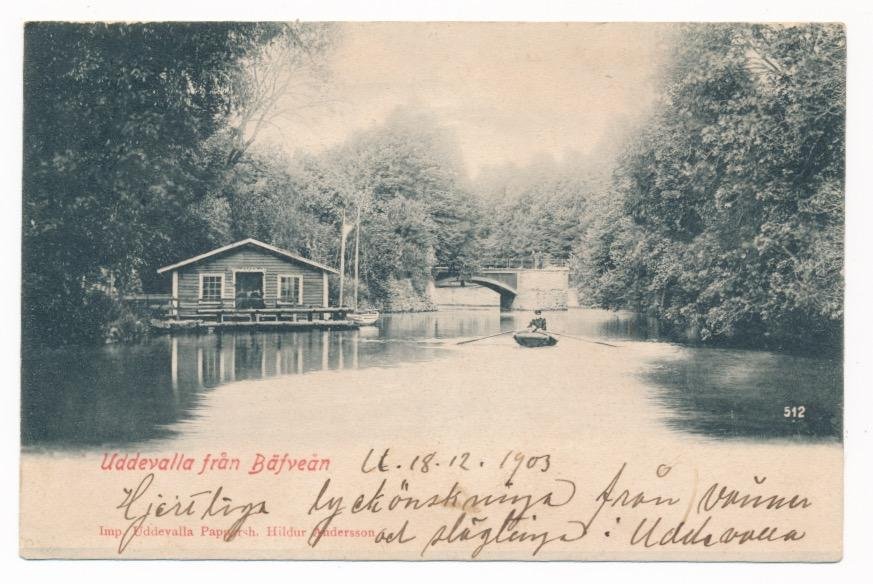 512
Uddevalla från Bäfveån
U. 18.12.1903
Hjertliga lyckönskningar från vänner
Imp. Uddevalla Pappersh. Hildur Andersson.
och slägtingar i Uddevalla